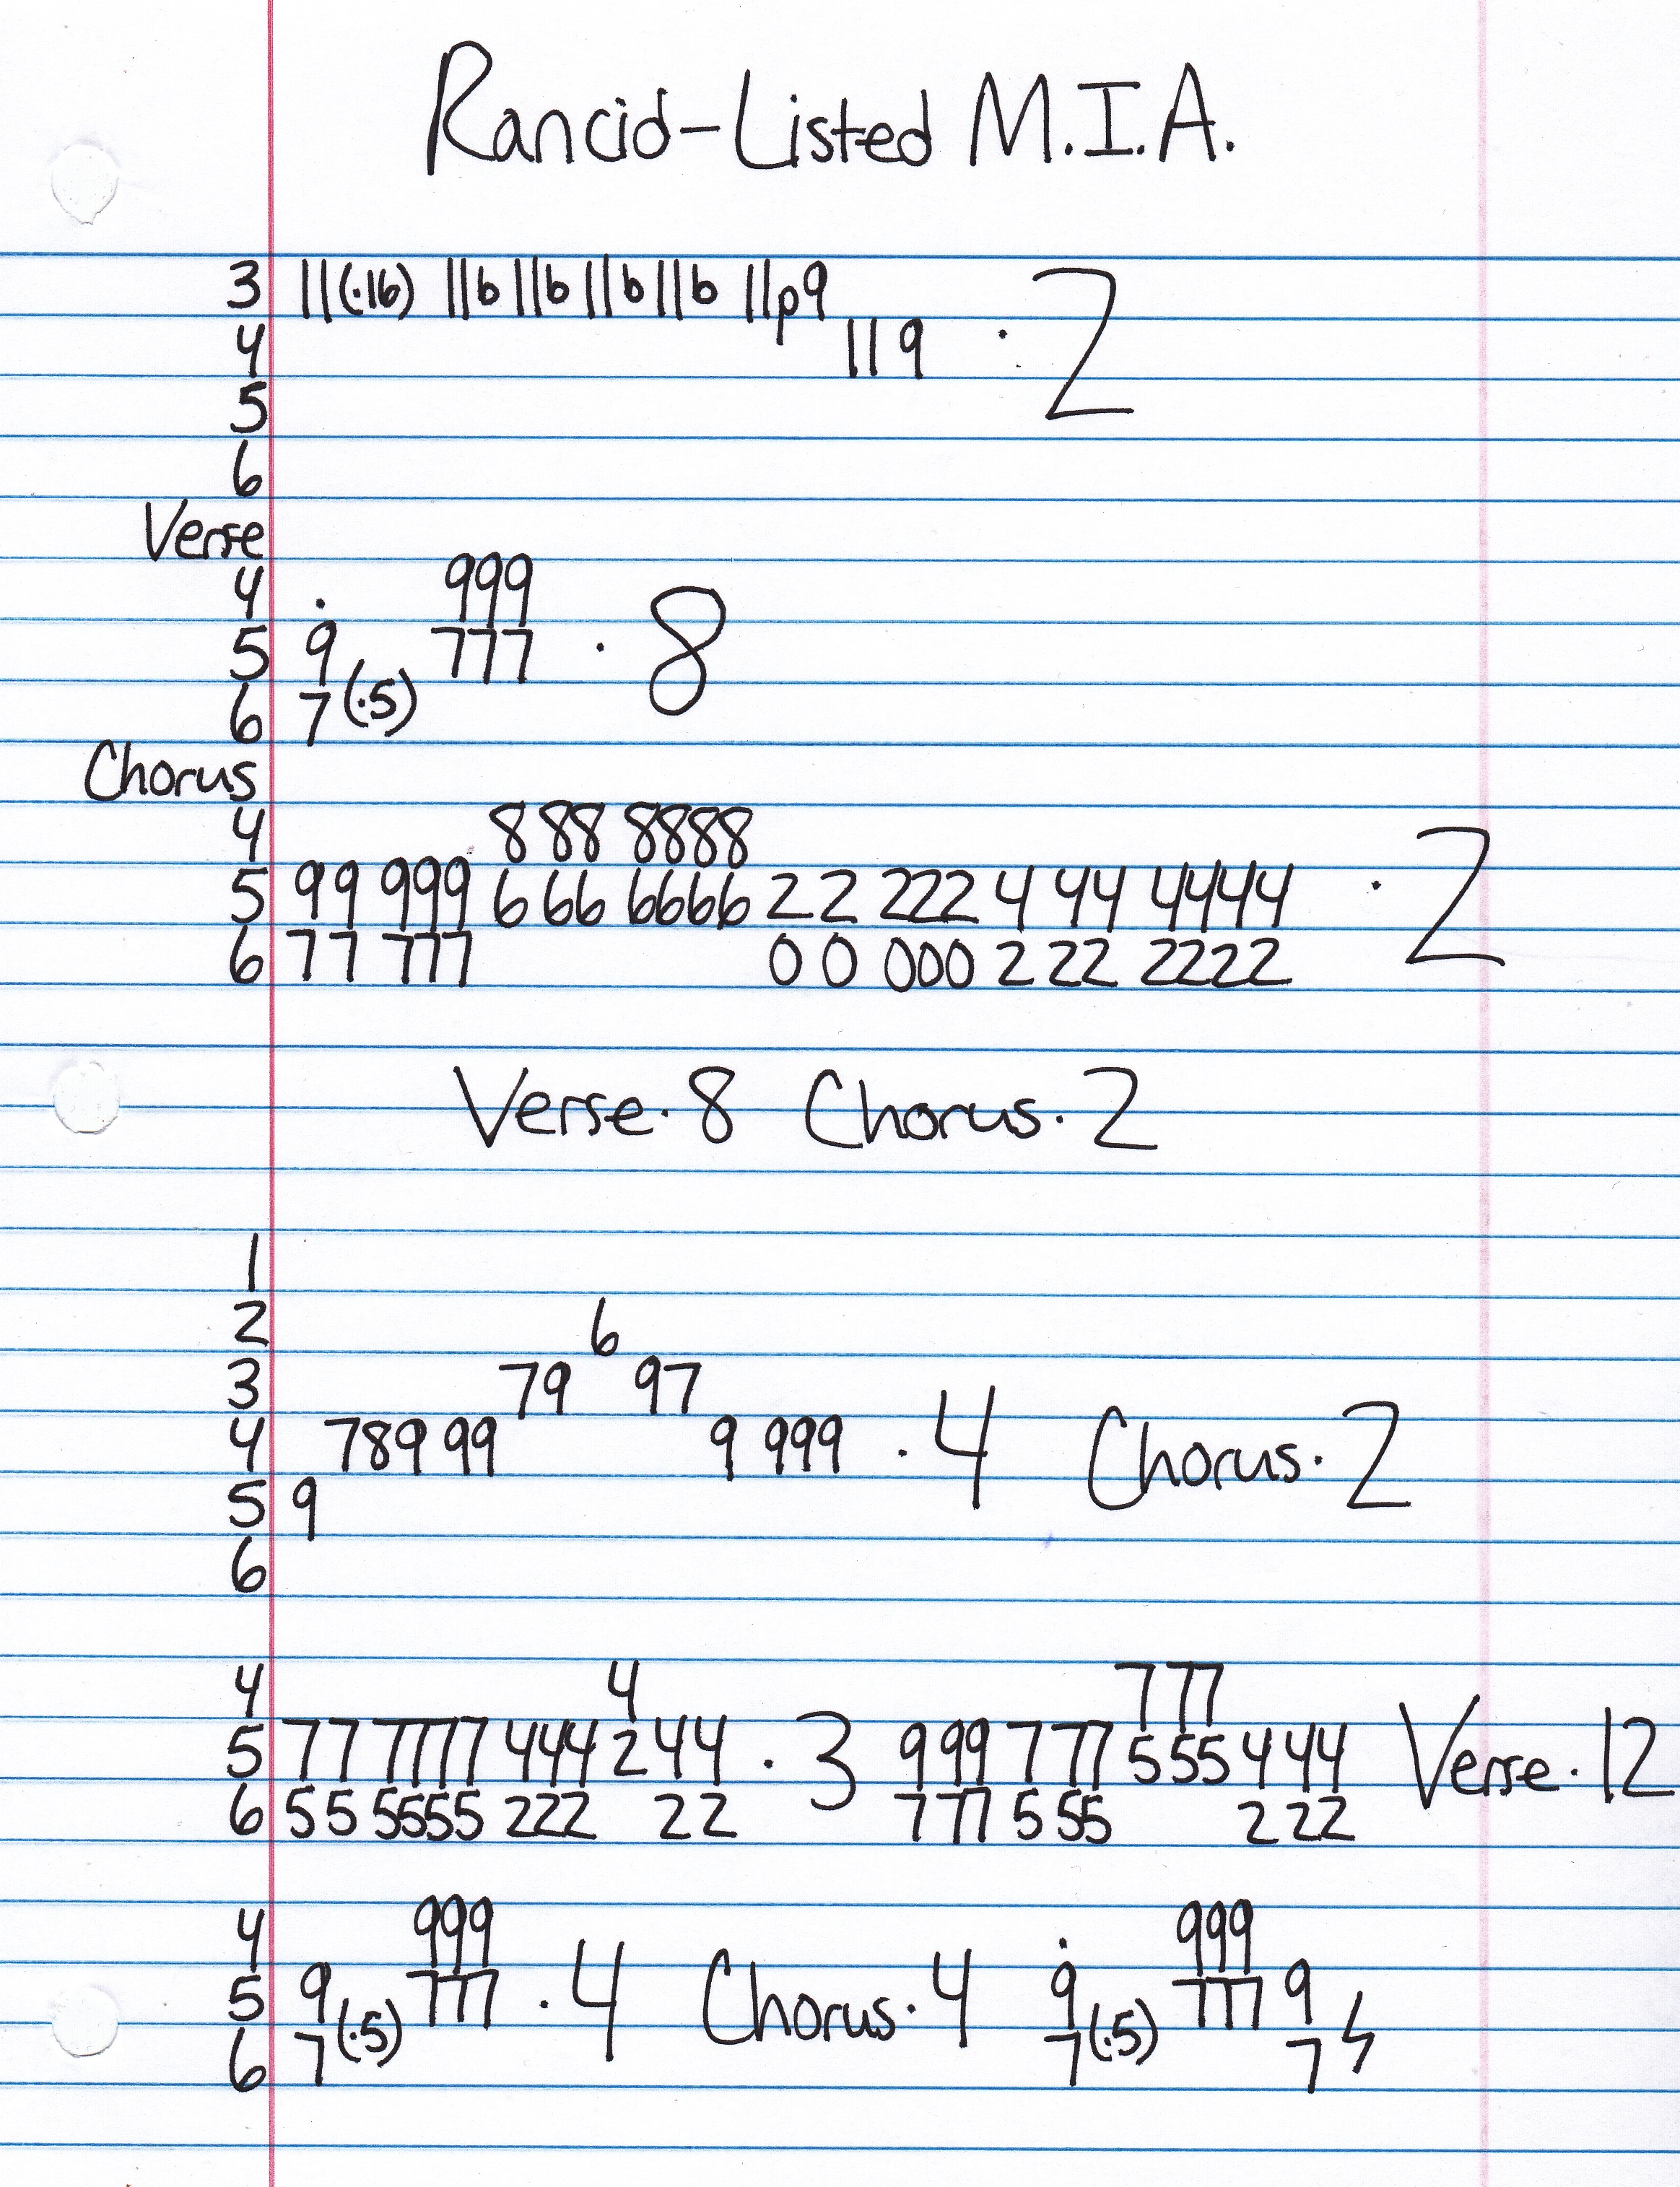 Rancid-Listed M.I.A.
3 11(·16) 11b 11b 11b 11b 11p9
4 11 9 · 2
5
6
Verse
4 · 999
5 9 777 · 8
6 7 (·5)
Chorus
4 8 88 8888
5 99 999 6 66 6666 2 2 222 4 44 4444 · 2
6 77 777 0 0 000 2 22 2222
Verse·8 Chorus·2
1
2 6
3 79 97
4 789 99 9 999 ·4 Chorus·2
5 9
6
4 4 7 77
5 77 7777 444 2 44 ·3 9 99 7 77 5 55 4 44 Verse·12
6 55 5555 222 22 7 77 5 55 2 22
4 999 · 999
5 9 777 ·4 Chorus·4 9 777 9
6 7 (·5) 7 (·5) 7